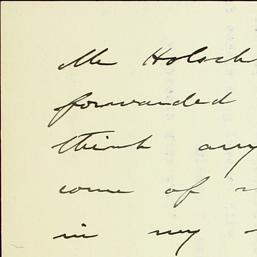 Mr Holsch
forwarded
think any
come of
in my